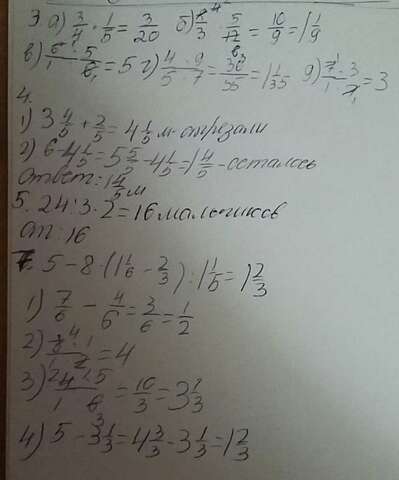 3. а) 3/4 · 1/5 = 3/20 б) 8/3 · 5/12 = 10/9 = 1 1/9
в) 6 · 5 / 1 · 6 = 5 г) 4 · 9 / 5 · 7 = 36/35 = 1 1/35 д) 7 · 3 / 1 · 7 = 3
4.
1) 3 4/5 + 2/5 = 4 1/5 м - отрезали
2) 6 - 4 1/5 = 5 5/5 - 4 1/5 = 1 4/5 - осталось
Ответ: 1 4/5 м
5. 24 : 3 · 2 = 16 мальчиков
От: 16
7. 5 - 8 · (1 1/6 - 2/3) : 1 1/5 = 1 2/3
1) 7/6 - 4/6 = 3/6 = 1/2
2) 8 · 1 / 1 · 2 = 4
3) 4 · 5 / 1 · 6 = 10/3 = 3 1/3
4) 5 - 3 1/3 = 4 3/3 - 3 1/3 = 1 2/3